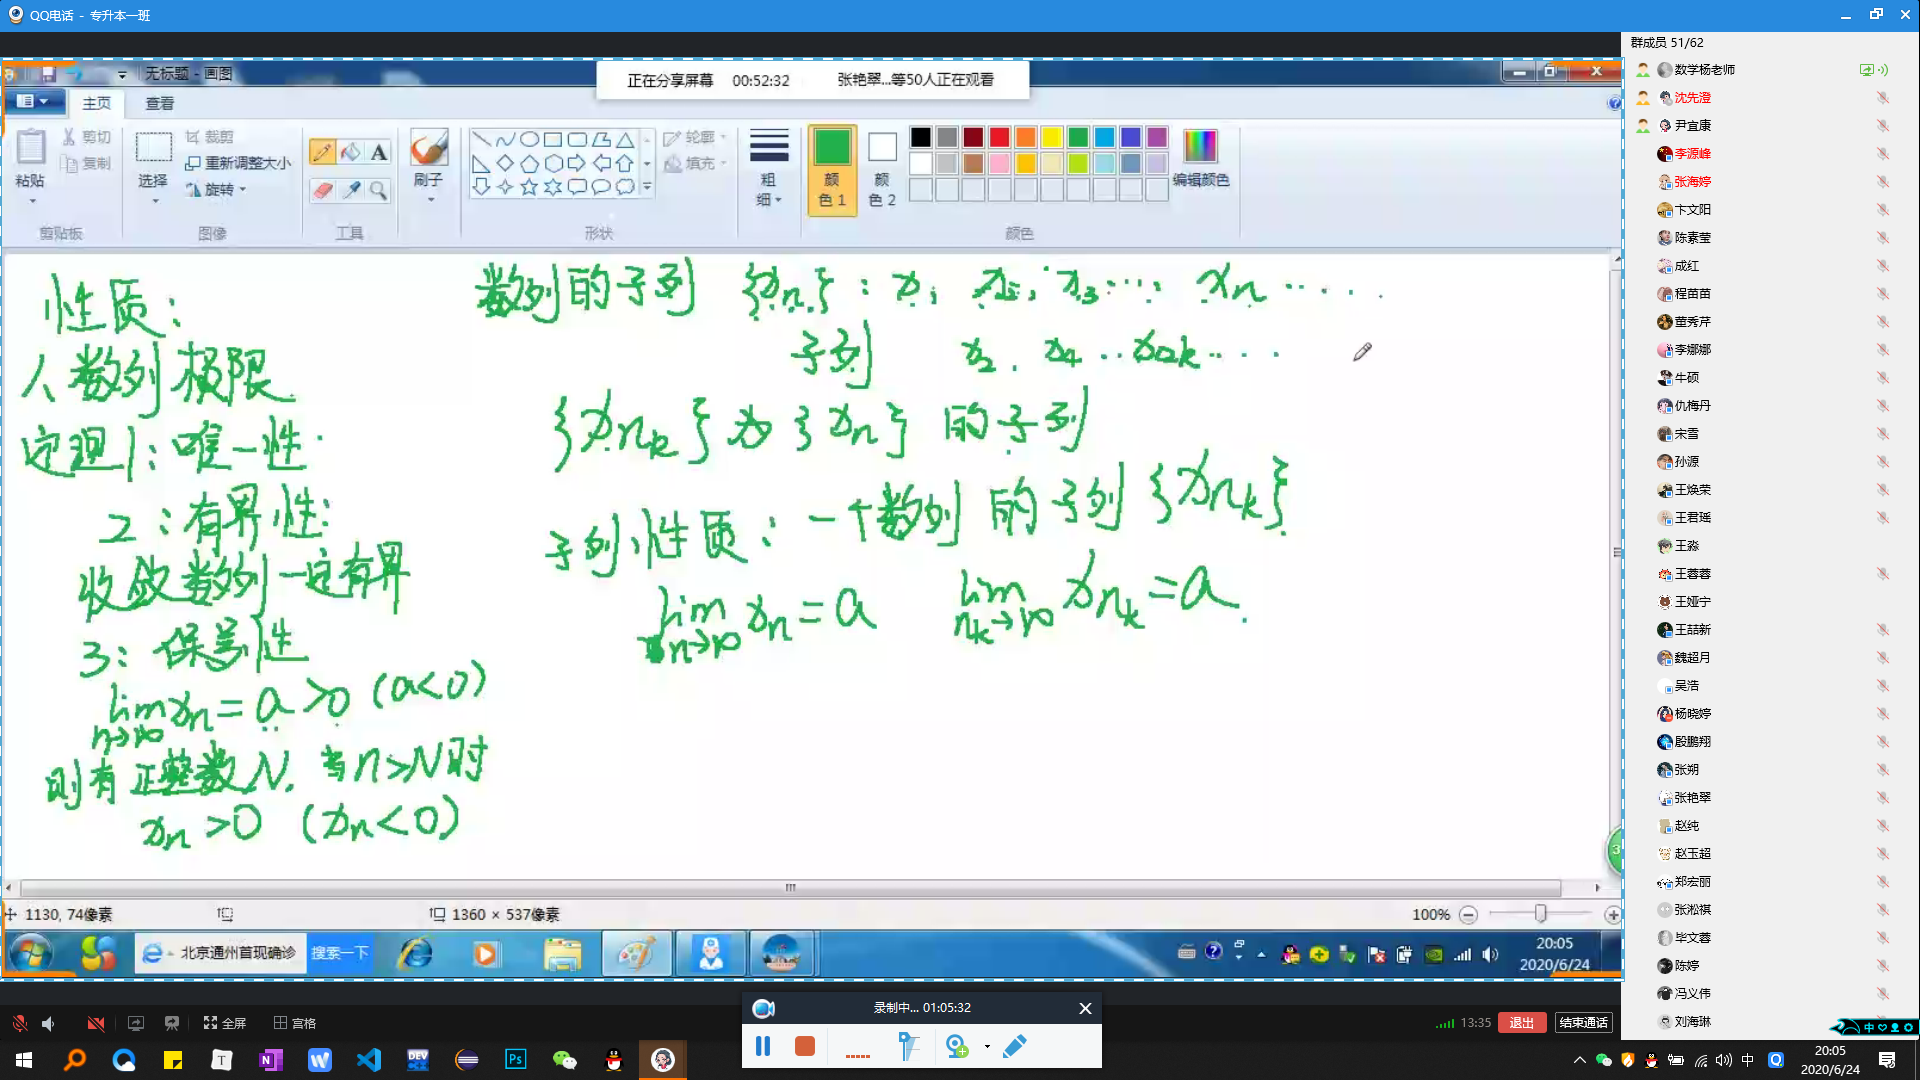 QQ电话 - 专升本一班
无标题 - 画图
正在分享屏幕 00:52:32 张艳翠...等50人正在观看
主页 查看
粘贴
剪切
复制
剪贴板
选择
裁剪
重新调整大小
旋转
图像
A
工具
刷子
轮廓
填充
形状
粗细
颜色 1
颜色 2
编辑颜色
颜色
性质:
1、数列极限
定理1: 唯一性.
2: 有界性:
收敛数列一定有界
3: 保号性
lim xn = a > 0 (a<0)
n→∞
则有正整数N, 当n>N时
xn >0 (xn<0)
数列的子列 {xn}: x1, x2, x3 ... xn .....
子列 x2, x4 ... x2k ....
{xnk} 为 {xn} 的子列
子列性质: 一个数列的子列{xnk}
lim xn = a lim xnk = a.
n→∞ nk→∞
1130, 74像素
1360 × 537像素
100%
北京通州首现确诊 搜索一下
20:05
2020/6/24
群成员 51/62
数学杨老师
沈先澄
尹宜康
李源峰
张海婷
卞文阳
陈素莹
成红
程苗苗
董秀芹
李娜娜
牛硕
仇梅丹
宋雪
孙源
王焕荣
王君瑶
王淼
王蓉蓉
王娅宁
王喆新
魏超月
吴浩
杨晓婷
殷鹏翔
张朔
张艳翠
赵纯
赵玉超
郑宏丽
张淞祺
毕文蓉
陈婷
冯义伟
刘海琳
全屏 宫格
录制中... 01:05:32
13:35 退出 结束通话
中
T N W DEV Ps
中
20:05
2020/6/24